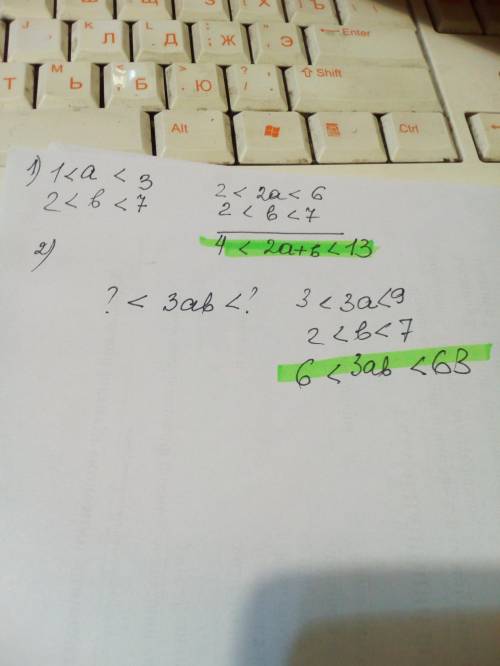 J О
K Л {
L Д
: ; Ж
" ' Э
← Enter
Т
M Ь
< , Б
> . Ю
? /
⇧ Shift
Alt
Ctrl
1) 1 < a < 3
2 < в < 7
2 < 2a < 6
2 < в < 7
4 < 2a+в < 13
2)
? < 3ав < ?
3 < 3a < 9
2 < в < 7
6 < 3ав < 63